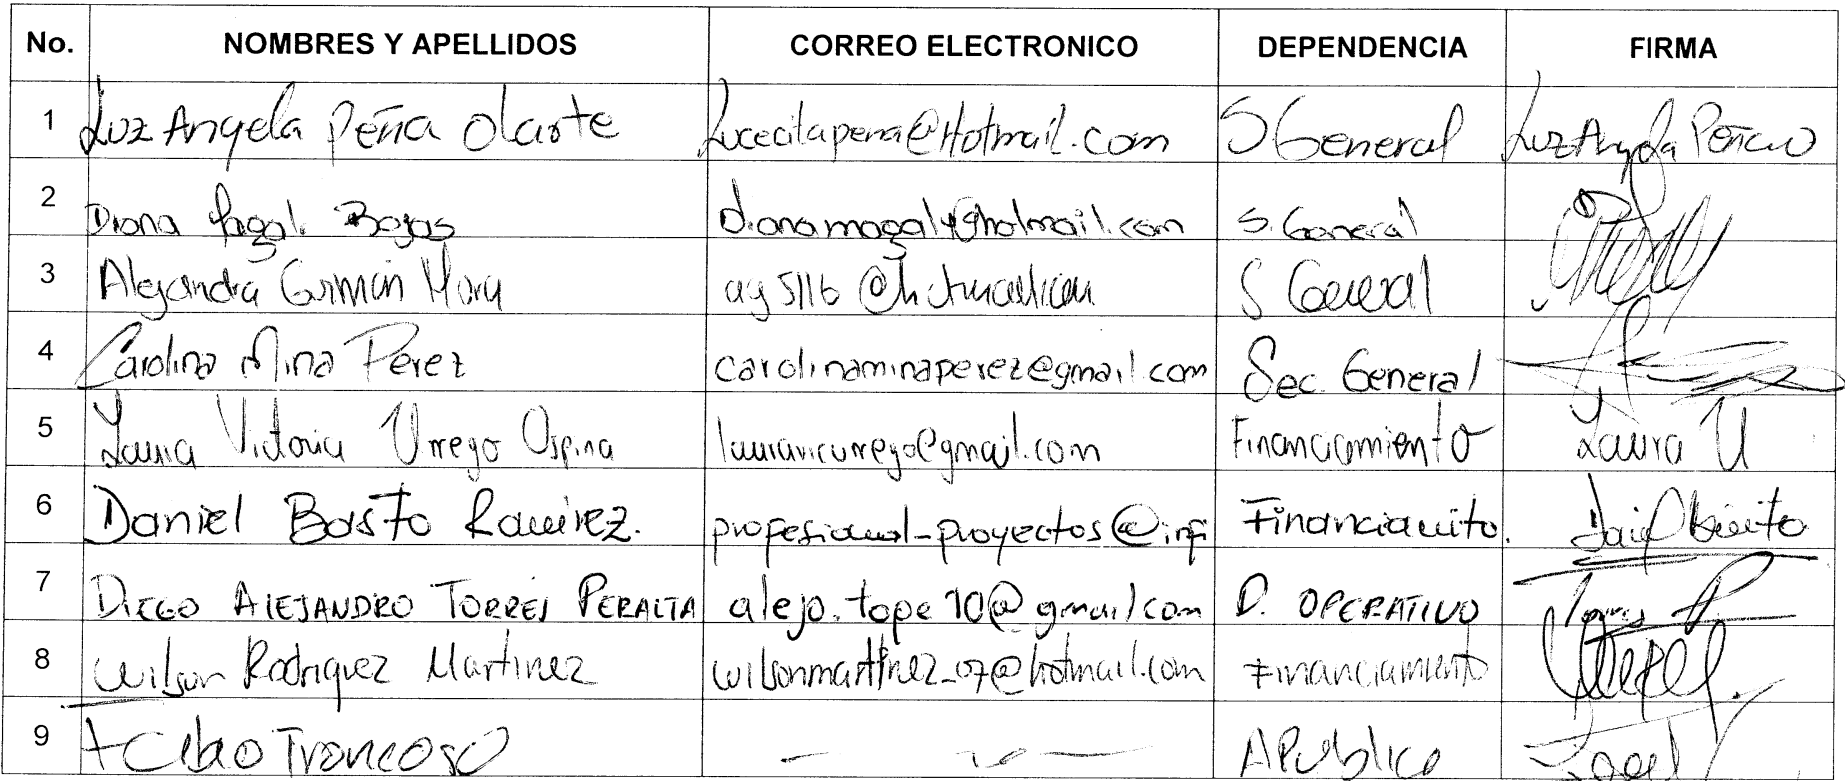 No. NOMBRES Y APELLIDOS CORREO ELECTRONICO DEPENDENCIA FIRMA
1 Luz Angela Peña Olarte Lucecitapena@Hotmail.com S General Luz Angela Peña
2 Diana Magali Rojas dianamagaly@hotmail.com S. General
3 Alejandra Guzmán Mora ag5116@hotmail.com S General
4 Carolina Mina Perez carolinaminaperez@gmail.com Sec General
5 Laura Victoria Urrego Ospina lauravicurrego@gmail.com Financiamiento Laura U
6 Daniel Basto Ramirez. profesional-proyectos@infi Financiamito.
7 DIEGO ALEJANDRO TORRES PERALTA alejo.tope10@gmail.com D. OPERATIVO
8 Wilson Rodriguez Martinez wilsonmartinez_07@hotmail.com Financiamiento
9 Troncoso APublico